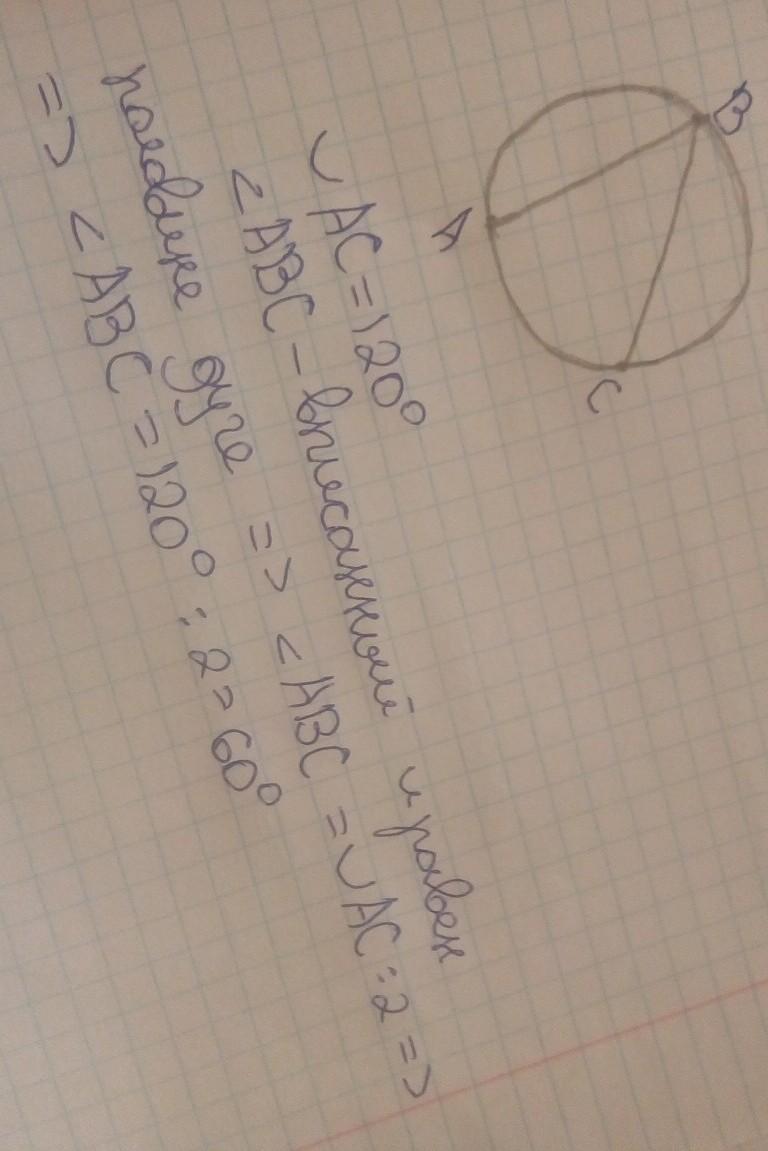 B
A
C
◡ AC = 120°
∠ABC - вписанный и равен
половине дуге => ∠ABC = ◡AC : 2 =>
=> ∠ABC = 120° : 2 = 60°